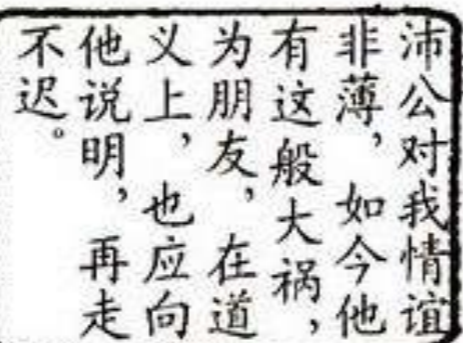 沛公对我情谊
非薄，如今他
有这般大祸，
为朋友，在道
义上，也应向
他说明，再走
不迟。